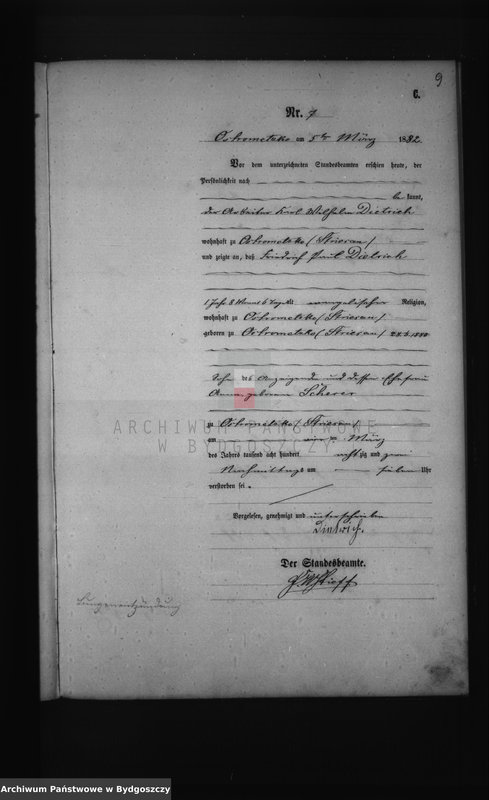 9
C.
Nr. 7
Ostrometzko am 5ten März 1882.
Vor dem unterzeichneten Standesbeamten erschien heute, der
Persönlichkeit nach
be kannt,
der Arbeiter Karl Wilhelm Dietrich
wohnhaft zu Ostrometzko (Strieran)
und zeigte an, daß Friedrich Paul Dietrich
1 Jahr 8 Monat 6 Tag alt evangelischer Religion,
wohnhaft zu Ostrometzko (Strieran)
geboren zu Ostrometzko (Strieran)
Sohn des Anzeigenden und dessen Ehefrau
Anna geborenen Scherer
zu Ostrometzko (Strieran)
am März
des Jahres tausend acht hundert acht zig und zwei
Nachmittags um sieben Uhr
verstorben sei.
Vorgelesen, genehmigt und unterschrieben
Dietrich.
Der Standesbeamte.
Lungenentzündung
ARCHIWUM PAŃSTWOWE
W BYDGOSZCZY
Archiwum Państwowe w Bydgoszczy